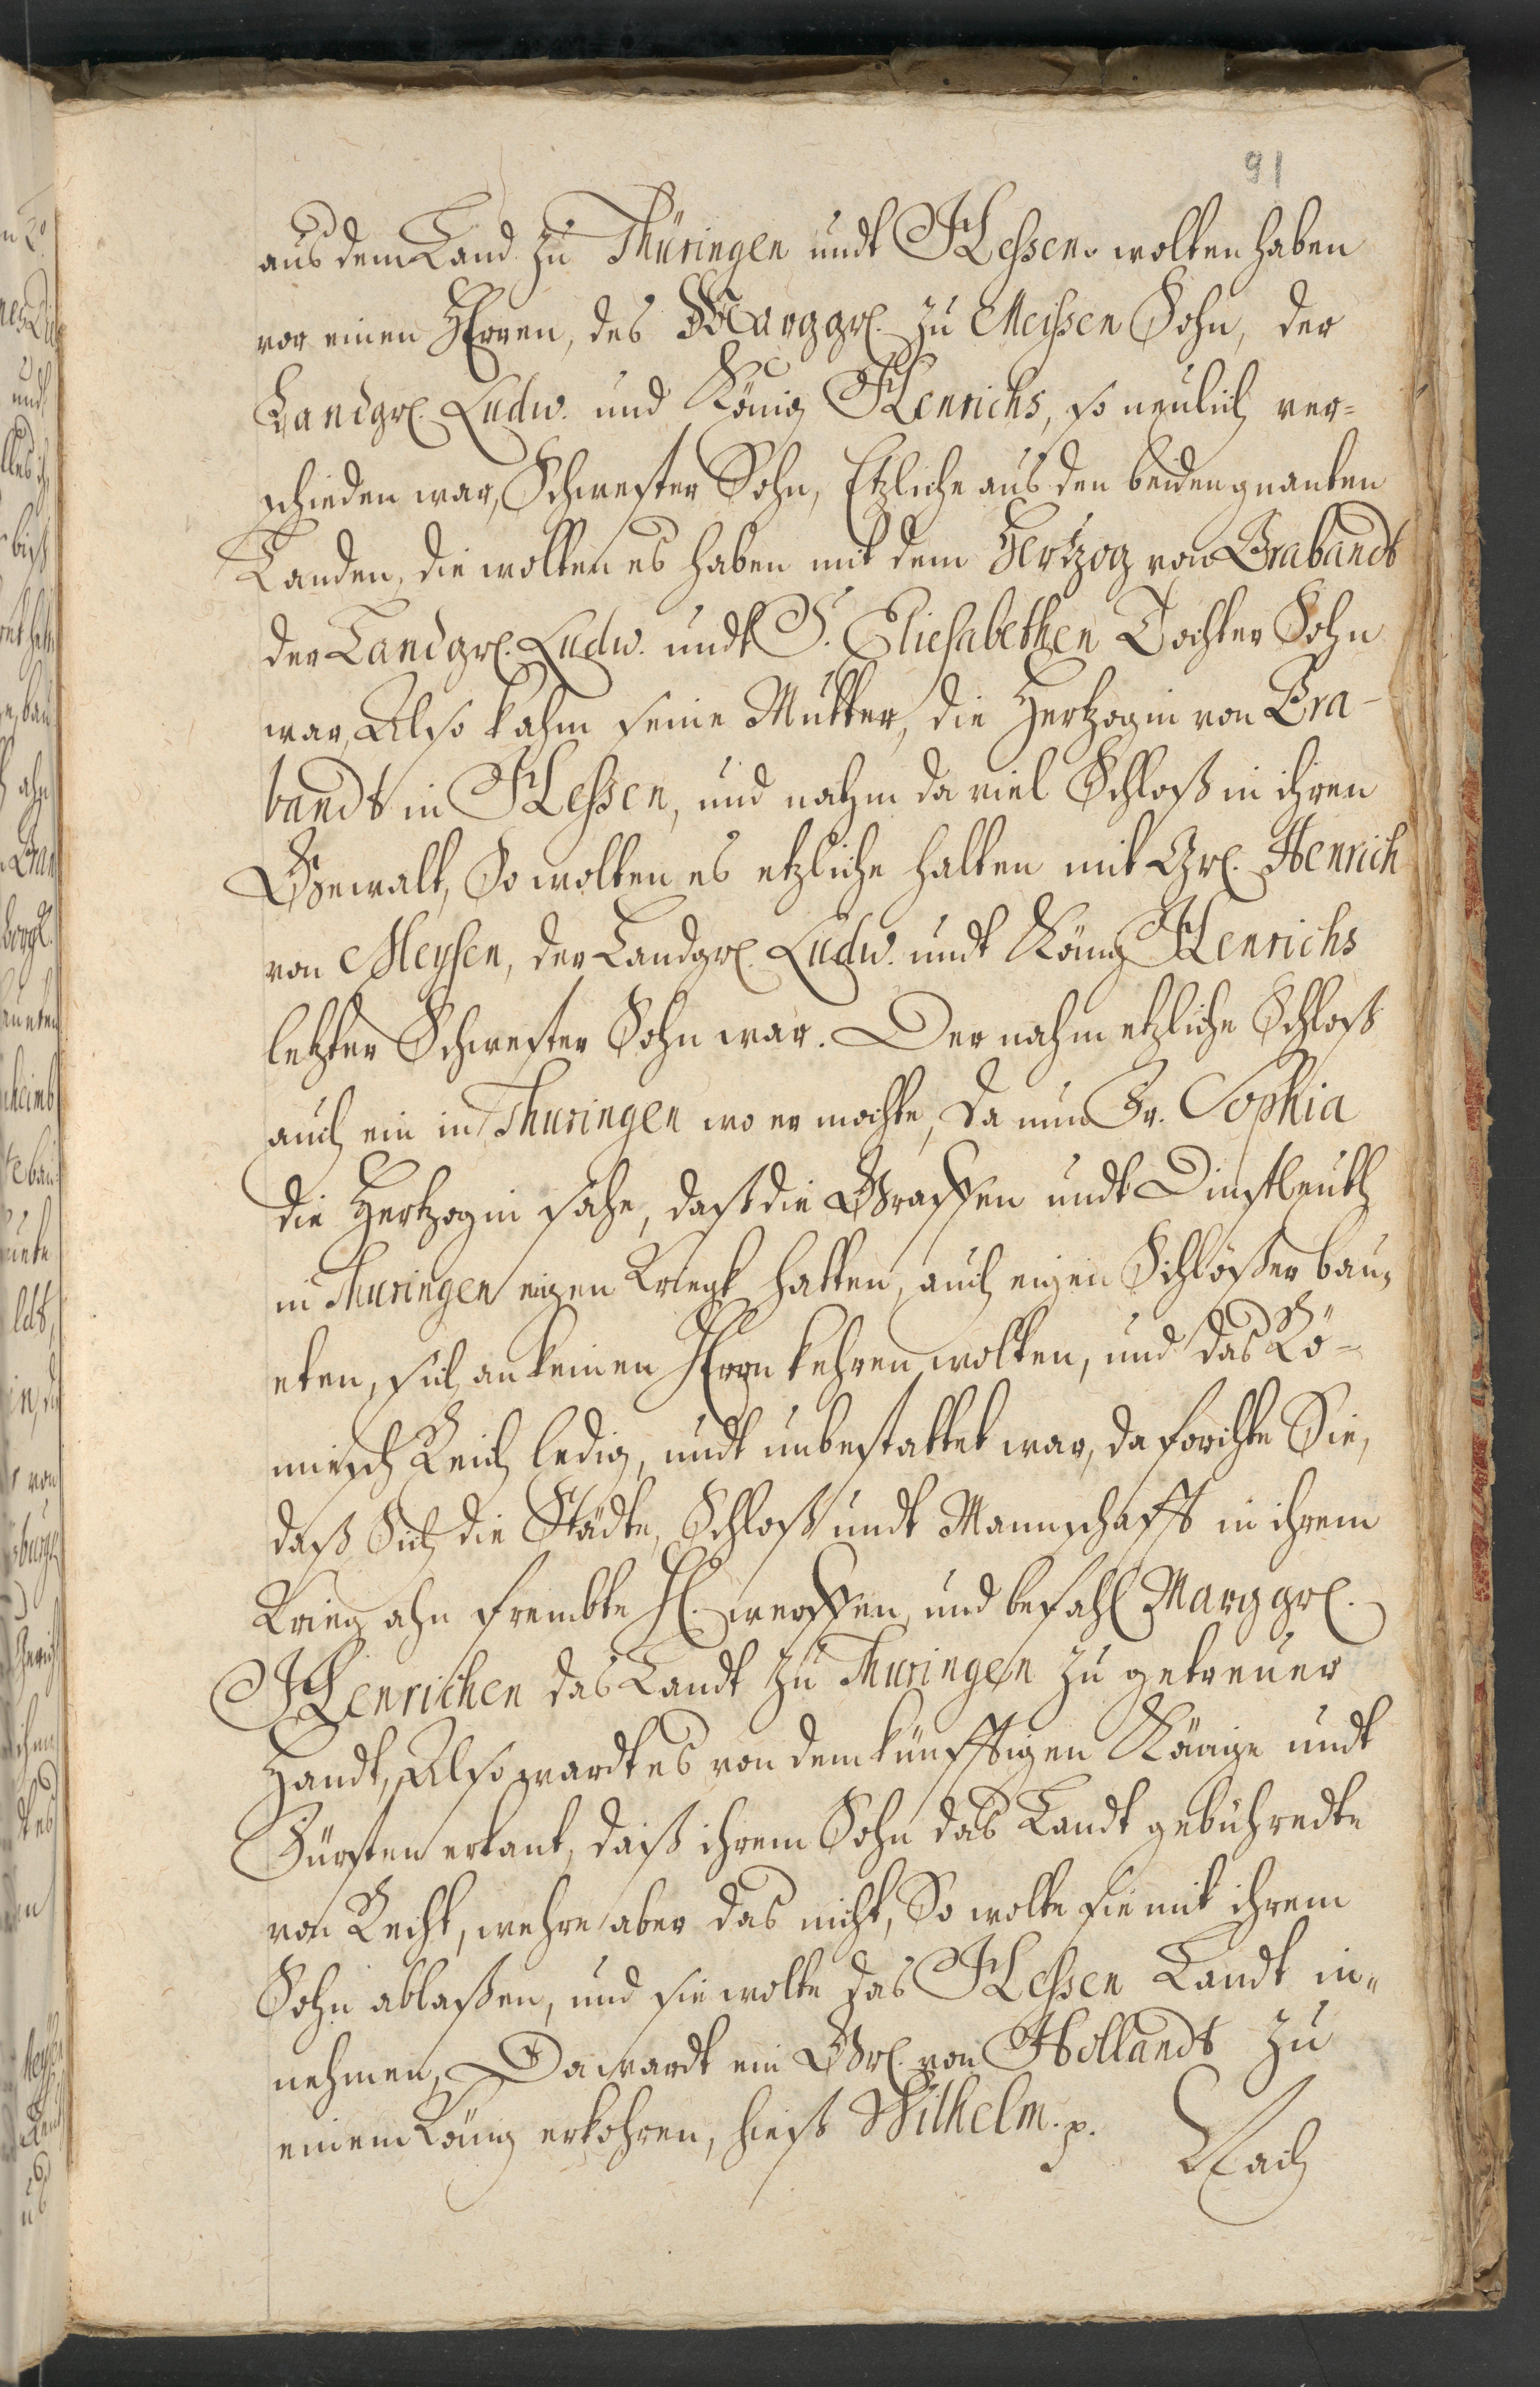 91
aus dem Land zu Thüringen undt Hessen wolten haben
vor einen Herren, des Marggr. zu Meissen Sohn, der
Landgr. Ludw. und König Henrichs, so neulich ver-
schieden war, Schwester Sohn, Etzliche aus den beiden gnanten
Landen, die wolten es haben mit dem Hertzog von Brabandt
der Landgr. Ludw. undt S. Eliesabethen Tochter Sohn
war, Also kahm seine Mutter, die Hertzogin von Bra-
bandt in Hessen, und nahm da viel Schloß in ihren
Gewalt, So wolten es etzliche halten mit Gr. Henrich
von Meysen, der Landgr. Ludw. undt König Henrichs
letzter Schwester Sohn war. Der nahm etzliche Schloß
auch ein in Thuringen wo er mochte, Da nun Fr. Sophia
die Hertzogin sahe, daß die Graffen undt Dinstleuth
in Thuringen eigen Kriegk hatten, auch eigen Schlößer bau-
eten, sich an keinen Herrn kehren wolten, und das Rö-
misch Reich ledig, undt unbestattet war, da forchte Sie,
daß Sich die Städte, Schloß undt Mannschafft in ihrem
Krieg ahn frembte H. werffen, und befahl Marggr.
Henrichen das Landt zu Thuringen zu getreuer
Handt, Also wardt es von dem künfftigen Könige undt
Fürsten erkant, daß ihrem Sohn das Landt gebühredte
von Recht, wehre aber das nicht, So wolte sie mit ihrem
Sohn ablaßen, und sie wolte das Hessen Landt in-
nehmen, Da wardt ein Gr. von Hollandt zu
einem König erkohren, hieß Wilhelm. p.
Nach